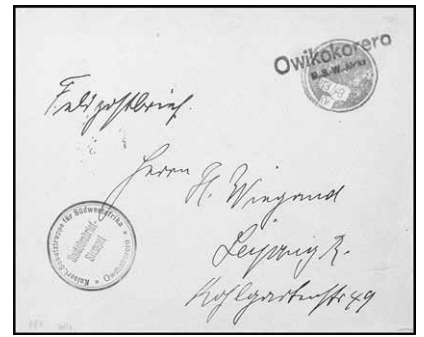 Owikokorero
D.S.W. Afrika
Feldpostbrief.
Herrn H. Wiegand
Leipzig R.
Kohlgartenstr 49
Kaiserl. Schutztruppe für Südwestafrika
Soldatenbrief-
Stempel
Owikokorero